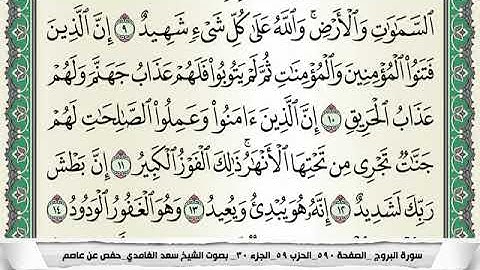 السَّمَٰوَٰتِ وَالْأَرْضِ ۚ وَاللَّهُ عَلَىٰ كُلِّ شَيْءٍ شَهِيدٌ ٩ إِنَّ الَّذِينَ
فَتَنُوا الْمُؤْمِنِينَ وَالْمُؤْمِنَٰتِ ثُمَّ لَمْ يَتُوبُوا فَلَهُمْ عَذَابُ جَهَنَّمَ وَلَهُمْ
عَذَابُ الْحَرِيقِ ١٠ إِنَّ الَّذِينَ ءَامَنُوا وَعَمِلُوا الصَّٰلِحَٰتِ لَهُمْ
جَنَّٰتٌ تَجْرِي مِن تَحْتِهَا الْأَنْهَٰرُ ۚ ذَٰلِكَ الْفَوْزُ الْكَبِيرُ ١١ إِنَّ بَطْشَ
رَبِّكَ لَشَدِيدٌ ١٢ إِنَّهُ هُوَ يُبْدِئُ وَيُعِيدُ ١٣ وَهُوَ الْغَفُورُ الْوَدُودُ ١٤
سورة البروج _الصفحة ٥٩٠_الحزب ٥٩_الجزء ٣٠_ بصوت الشيخ سعد الغامدي_ حفص عن عاصم